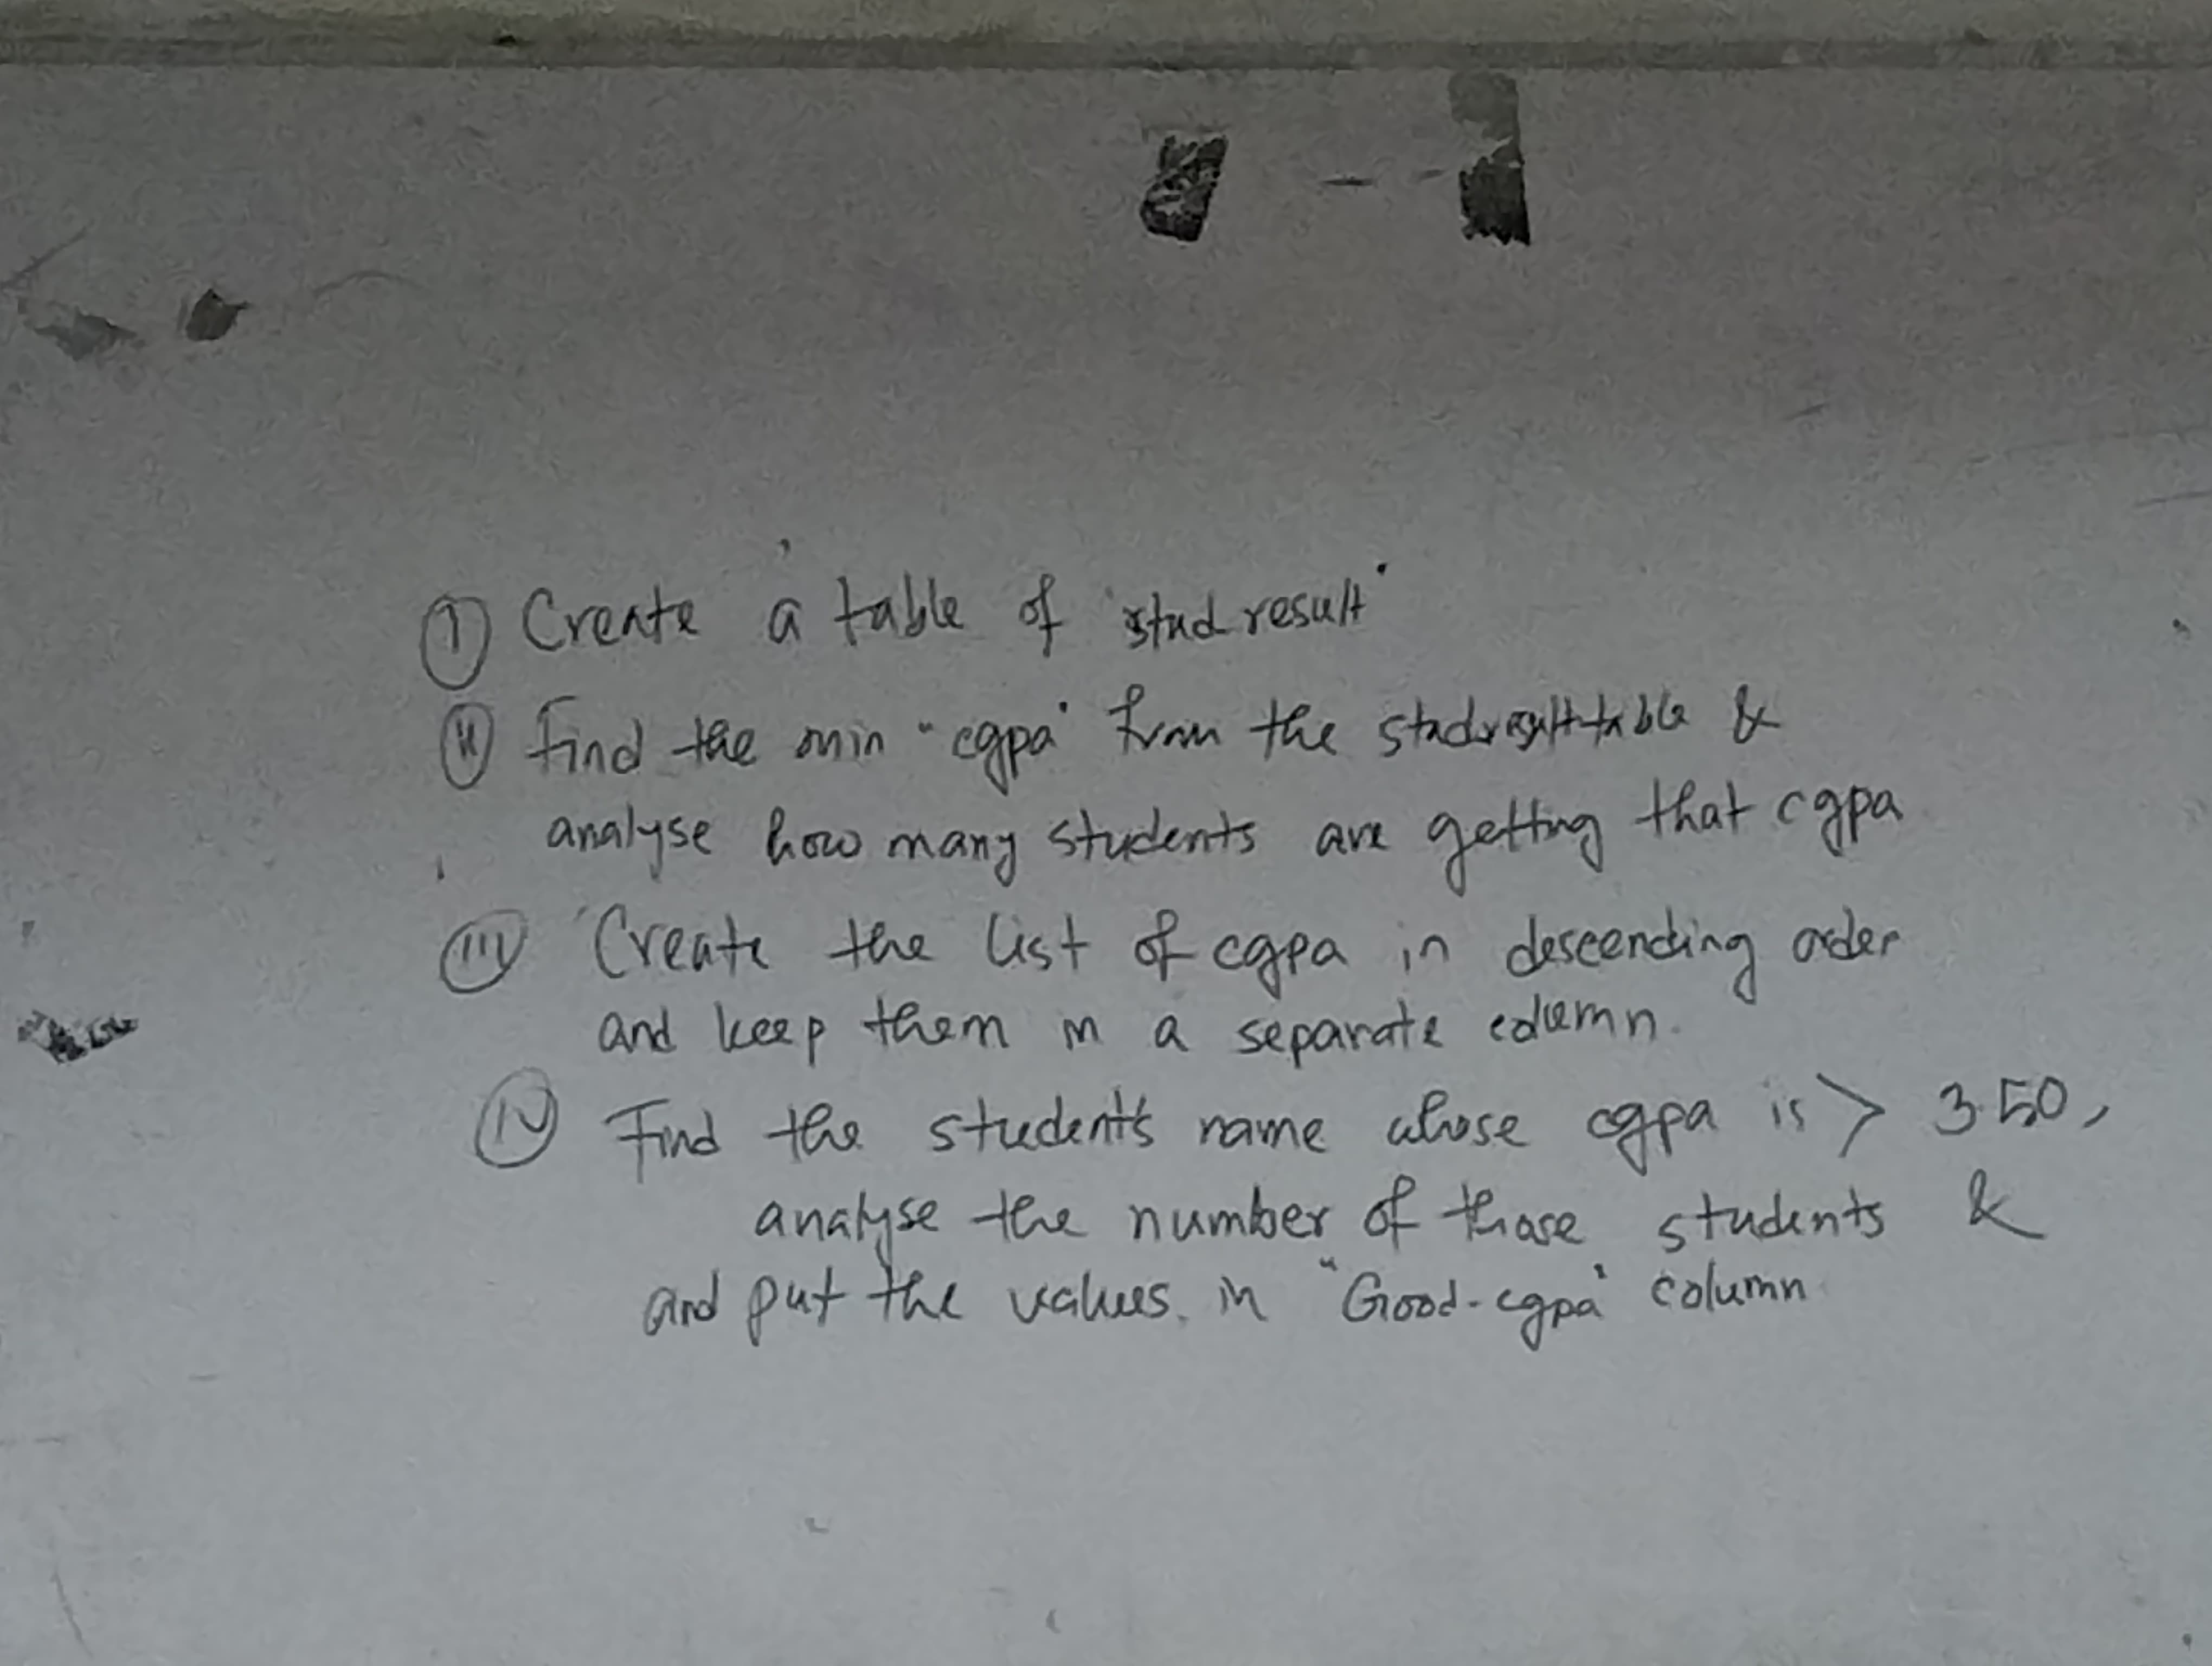 (I) Create a table of "studresult"
(II) Find the min "cgpa" from the studresult table &
analyse how many students are getting that cgpa
(III) Create the list of cgpa in descending order
and keep them in a separate column.
(IV) Find the student's name whose cgpa is > 3.50,
analyse the number of those students &
and put the values in "Good-cgpa" column